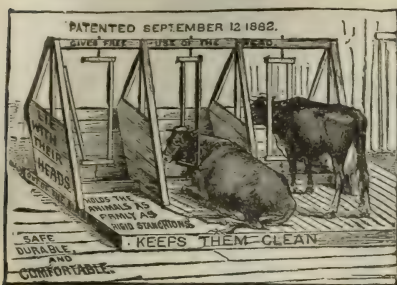 PATENTED SEPTEMBER 12 1882.
GIVES FREE USE OF THE HEAD.
LIE
WITH
THEIR
HEADS
HOLDS THE
ANIMALS AS
FIRMLY AS
RIGID STANCHIONS
KEEPS THEM CLEAN
SAFE
DURABLE,
AND
COMFORTABLE.